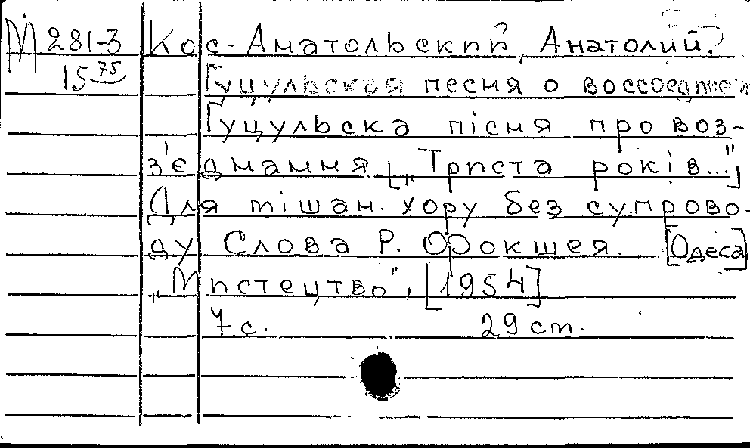 М 281-3 Кос-Анатольский, Анатолий.
15 75 Гуцульская песня о воссоедине
Гуцульска пісня про воз-
з'єднання ["Триста років..."]
Для мішан. хору без супрово-
ду Слова Р. [Одеса]
„Мистецтво", [1954]
7 с. 29 см.